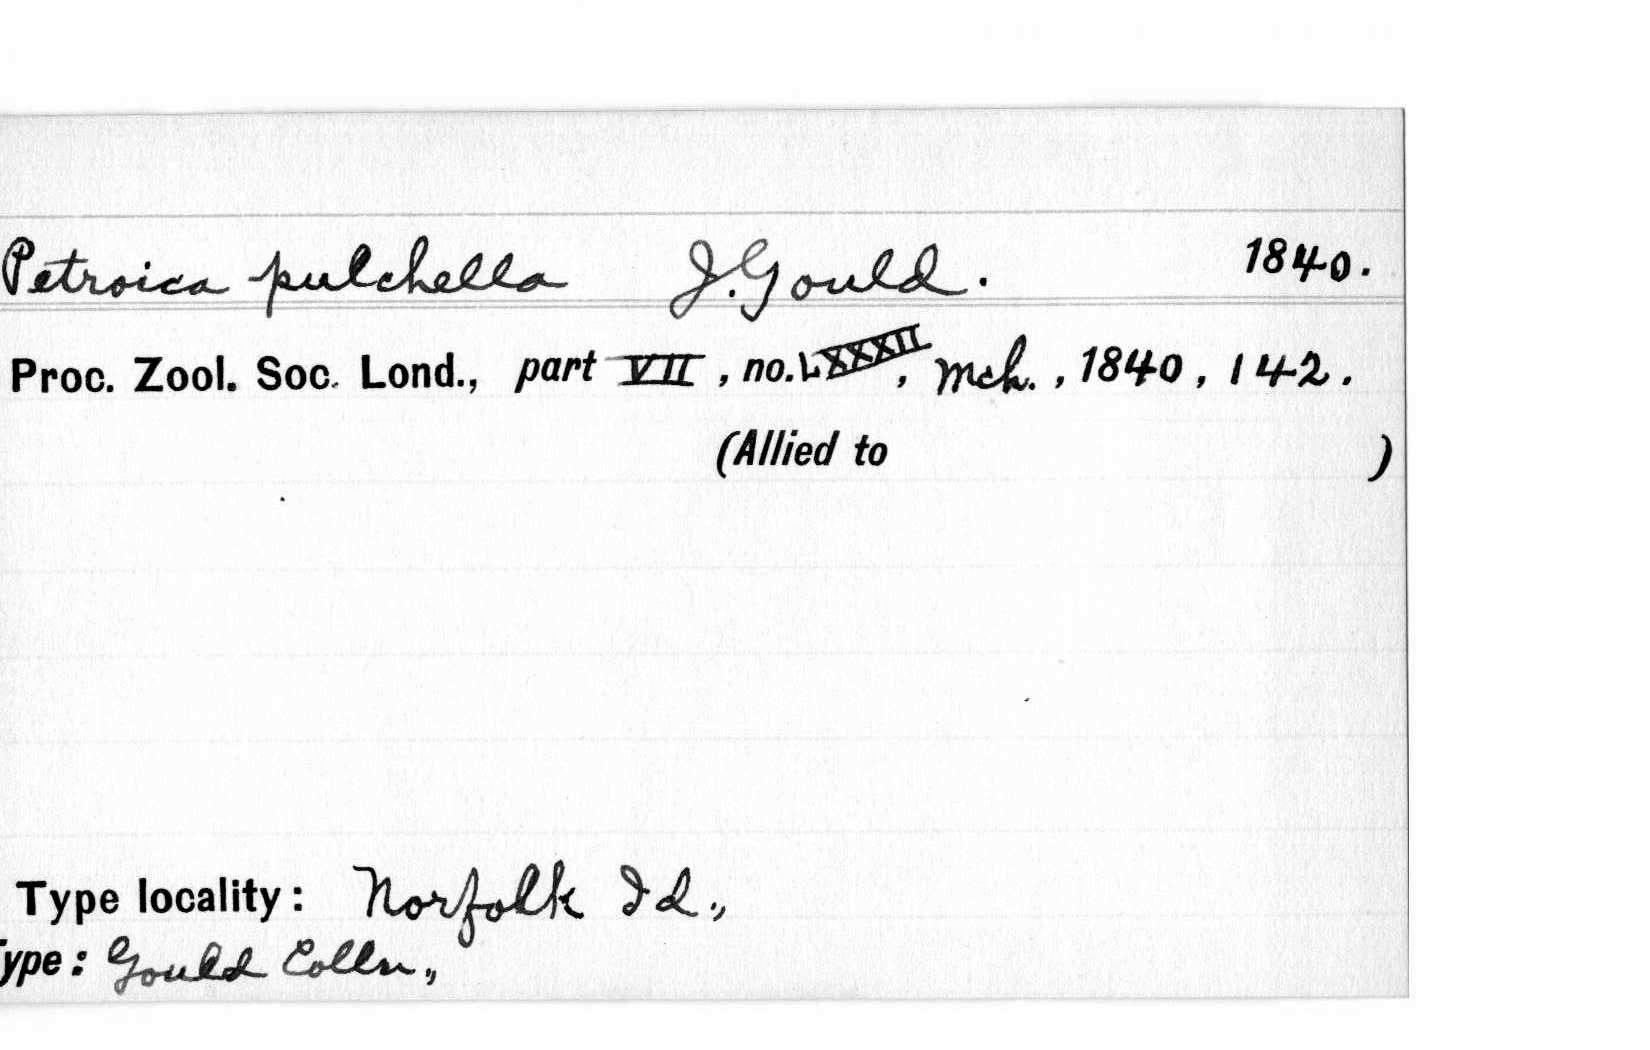 Petroica pulchella J. Gould. 1840.
Proc. Zool. Soc. Lond., part VII, no. LXXXII, Mch., 1840, 142.
(Allied to )
Type locality: Norfolk Id.,
Type: Gould Colln.,